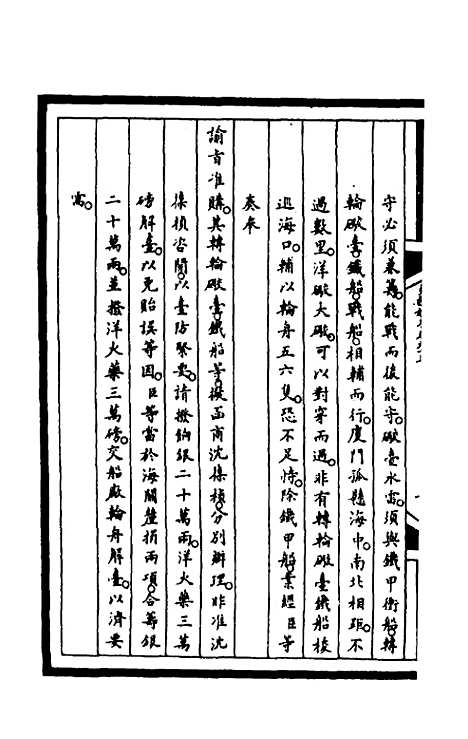 守必須兼籌。能戰而後能守。礮臺水雷。須與鐵甲衝船。轉
輪礮臺鐵船。戰船相輔而行。廈門孤懸海中。南北相距。不
過數里。洋礮大礮。可以對穿而過。非有轉輪礮臺鐵船梭
巡海口。輔以輪舟五六隻。恐不足恃。除鐵甲船業經臣等
奏奉
諭旨准購。其轉輪礮臺鐵船等。擬函商沈葆楨。分別辦理。非准沈
葆楨咨開。以臺防緊要。請撥餉銀二十萬兩。洋火藥三萬
磅解臺。以免貽誤等因。臣等當於海關釐捐兩項。合籌銀
二十萬兩。並撥洋火藥三萬磅。交船廠輪舟解臺。以濟要
需。